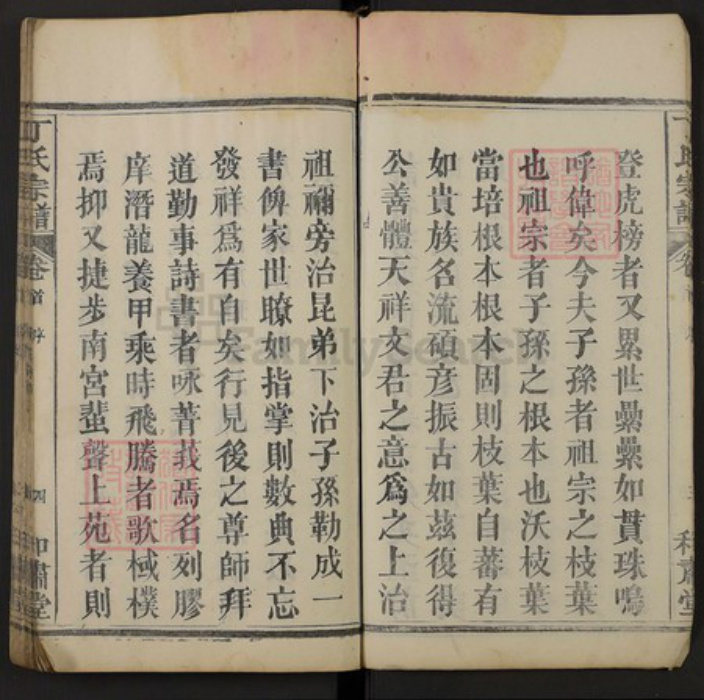 登虎榜者又累世纍纍如貫珠嗚
呼偉矣今夫子孫者祖宗之枝葉
也祖宗者子孫之根本也沃枝葉
當培根本根本固則枝葉自蕃有
如貴族名流碩彥振古如茲復得
公善體天祥文君之意爲之上治
祖禰旁治昆弟下治子孫勒成一
書俾家世瞭如指掌則數典不忘
發祥爲有自矣行見後之尊師拜
道勤事詩書者咏菁莪焉名列膠
庠潛龍養甲乘時飛騰者歌棫樸
焉抑又捷步南宮蜚聲上苑者則
丁氏宗譜 卷首 序 四 和肅堂
FamilySearch